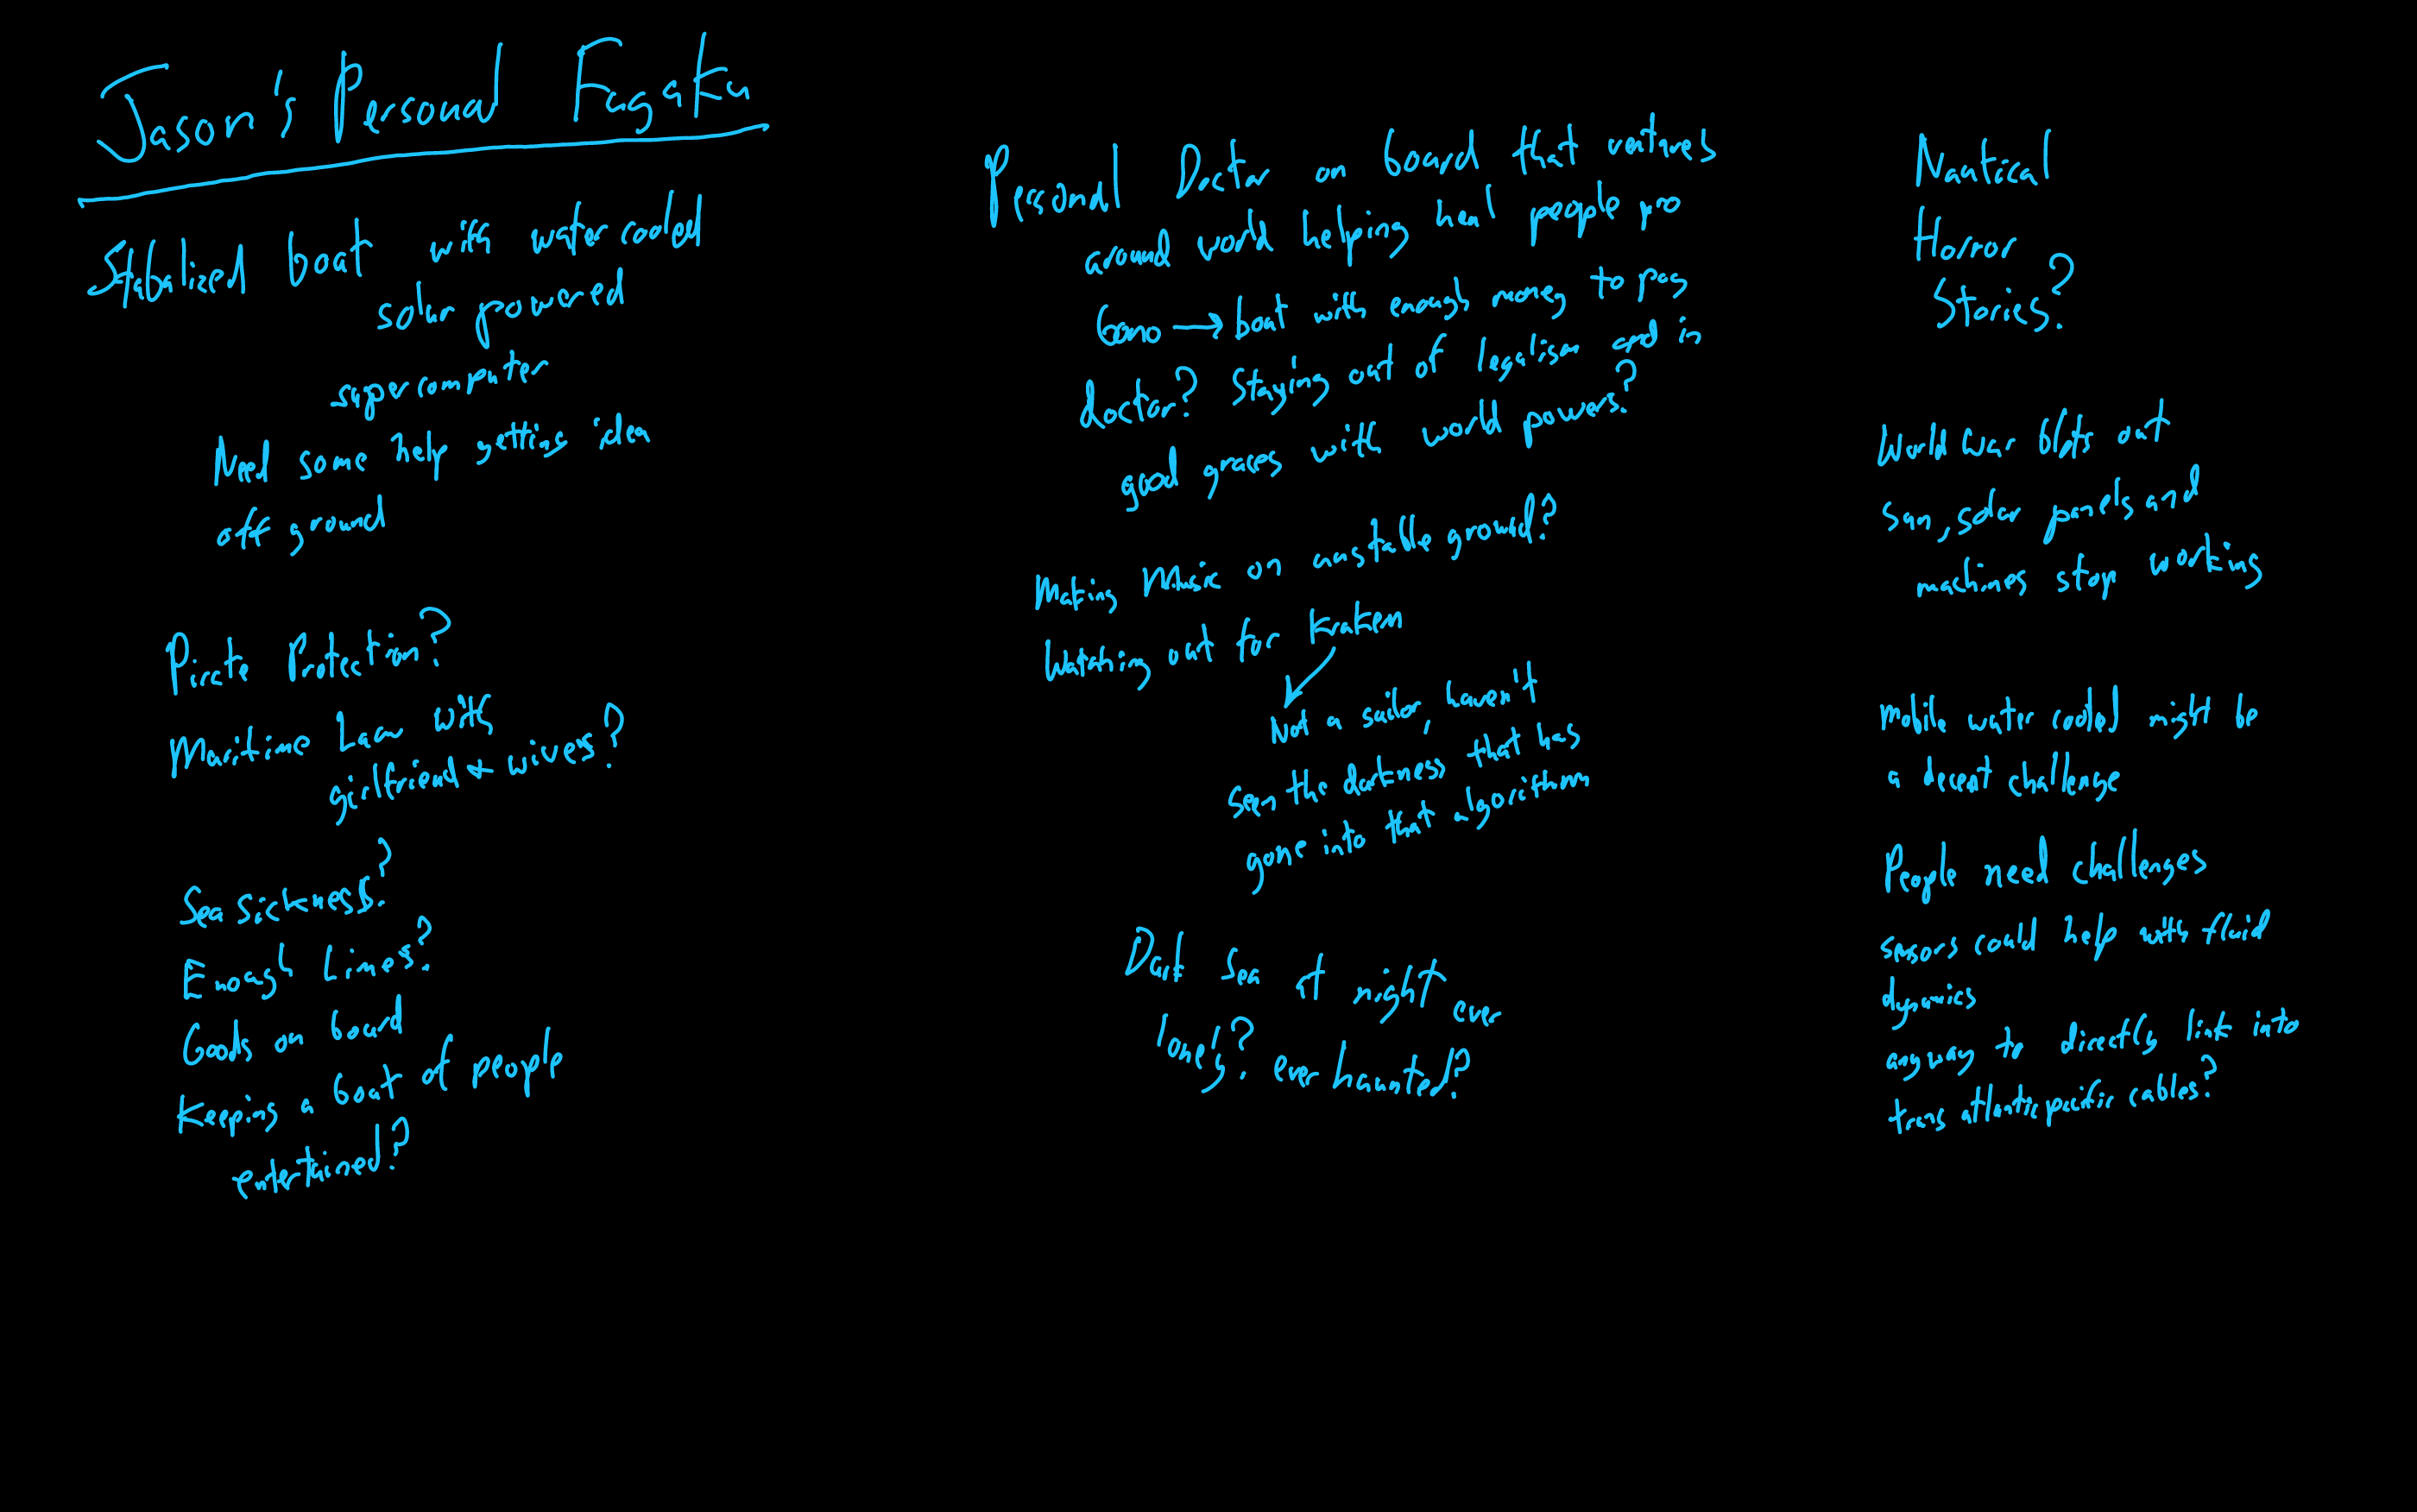 Jason's Personal Fugaku
Stabalized boat with water cooled
solar powered
supercomputer
Need some help getting idea
off ground
Pirate Protection?
Maritime Law with
girlfriend + wives?
Sea Sickness?
Enough Limes?
Goods on board
Keeping a boat of people
entertained?
Personal Doctor on board that ventures
around world helping heal people pro
bono → boat with enough money to pay
doctor? Staying out of legalism and in
good graces with world powers?
Making Music on unstable ground?
Watching out for Kraken
Not a sailor, haven't
seen the darkness that has
gone into that algorithm
Dark Sea at night ever
lonely? ever haunted?
Nautical
Horror
Stories?
World War blots out
sun, solar panels and
machines stop working
mobile water cooled might be
a decent challenge
People need challenges
sensors could help with fluid
dynamics
anyway to directly link into
trans atlantic pacific cables?